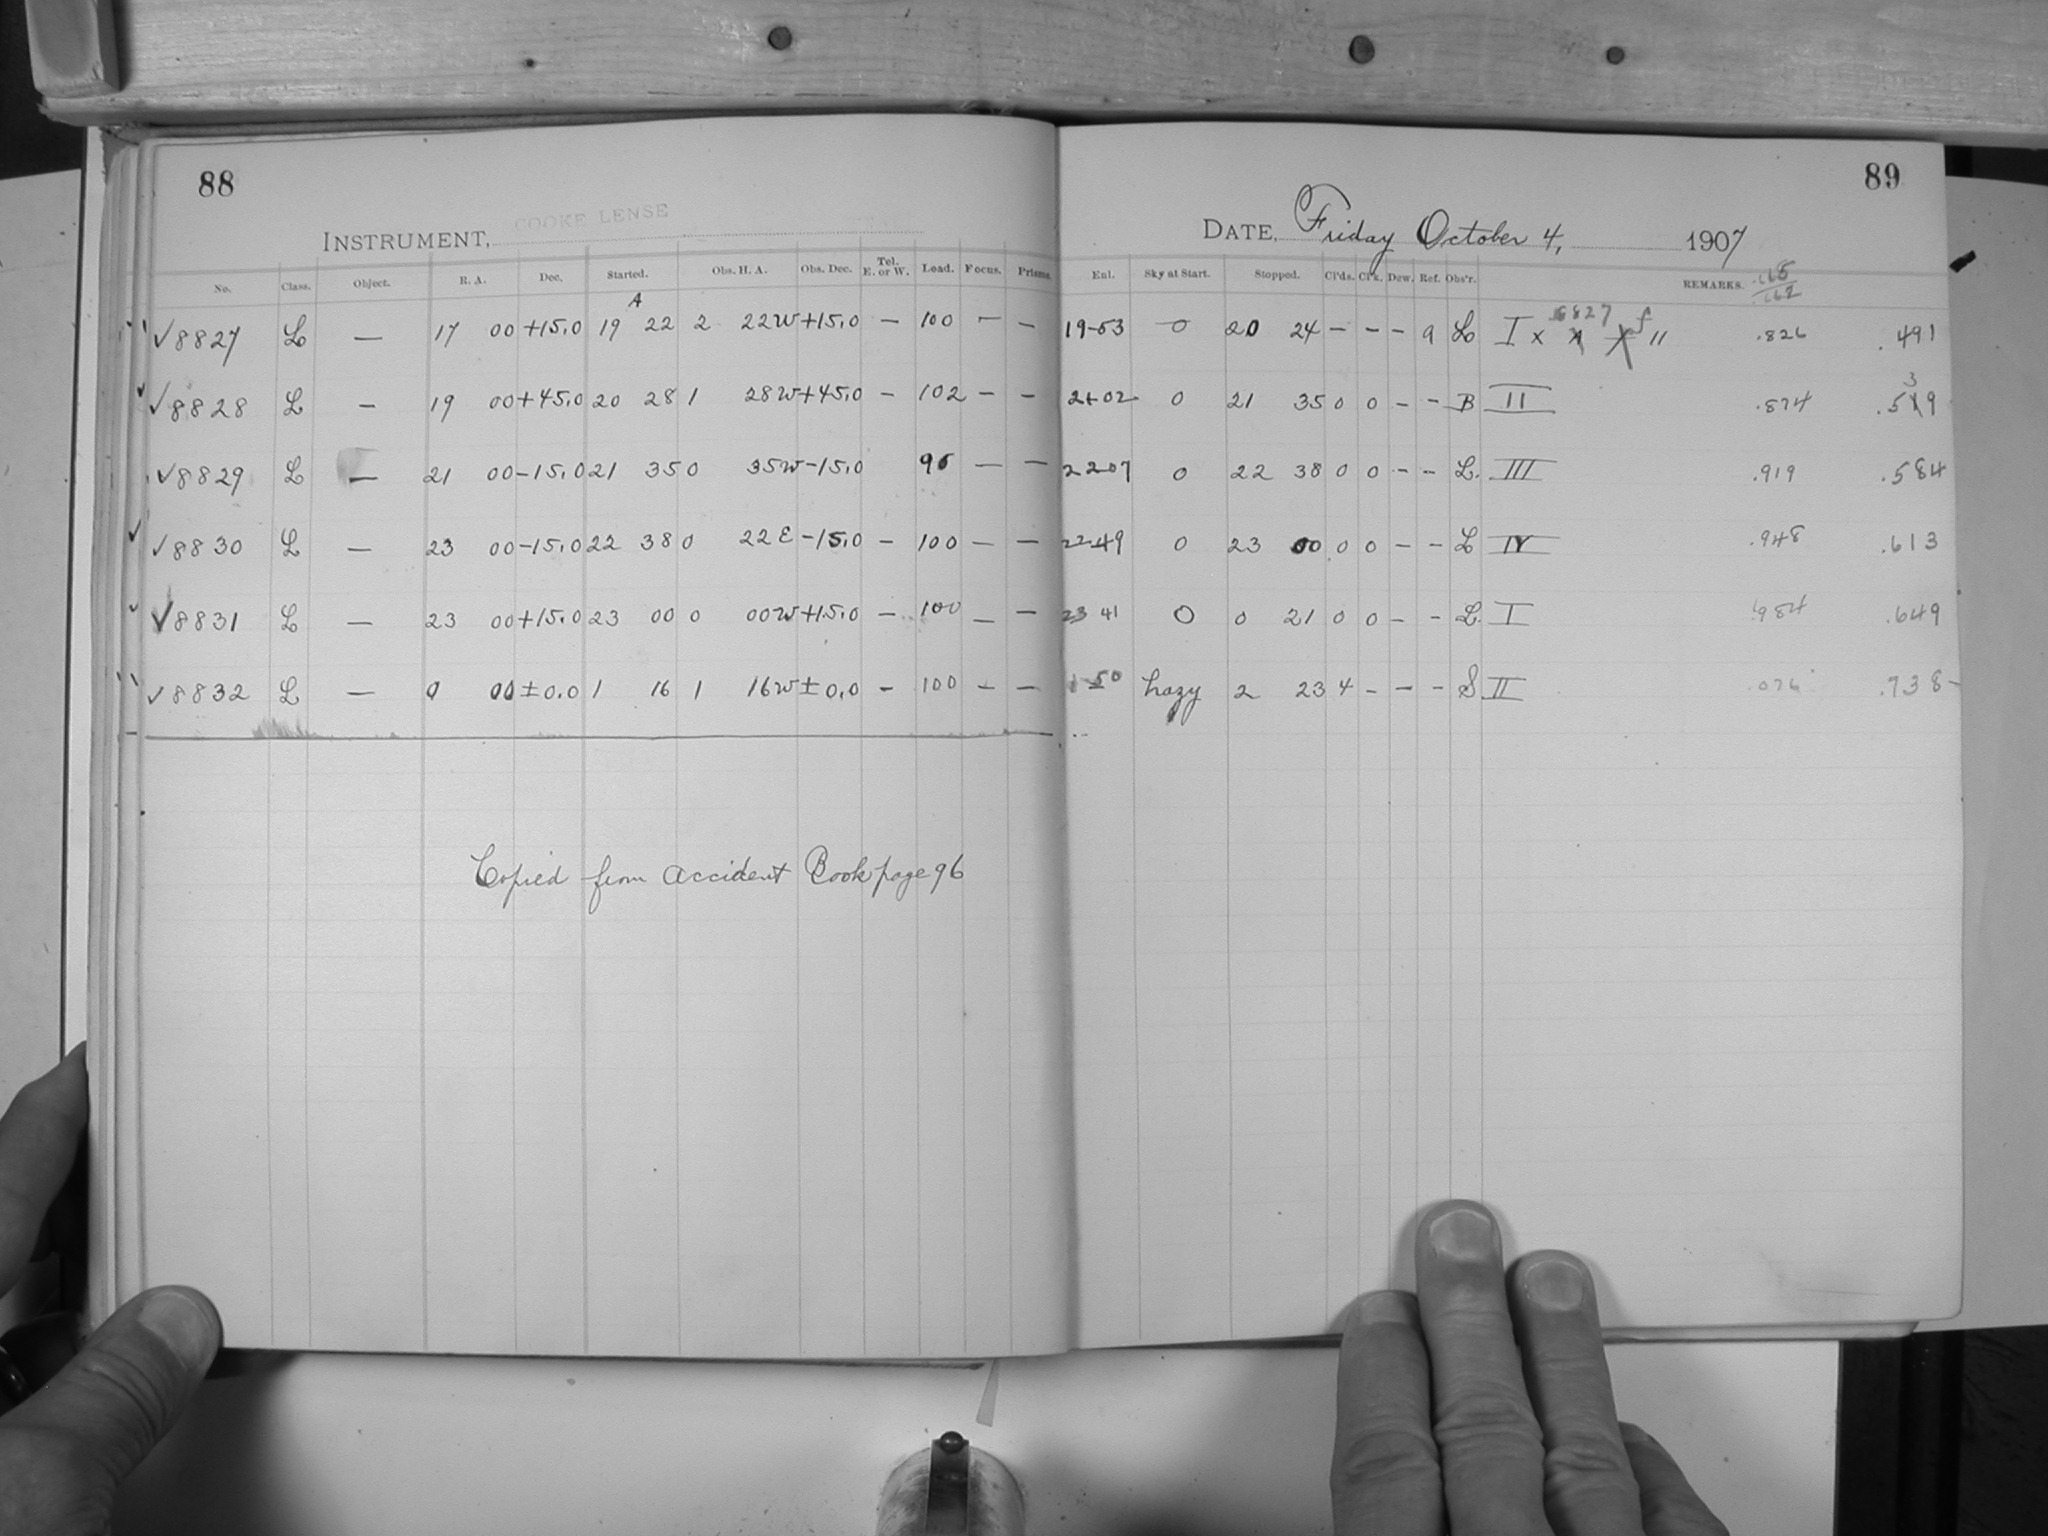 88
INSTRUMENT, COOKE LENSE
No. Class. Object. R. A. Dec. Started. Obs. H. A. Obs. Dec. Tel. E. or W. Load. Focus. Prisms.
A
✓8827 L — 17 00 +15.0 19 22 2 22W +15.0 — 100 — —
✓8828 L — 19 00 +45.0 20 28 1 28W +45.0 — 102 — —
✓8829 L — 21 00 -15.0 21 35 0 35W -15.0 96 — —
✓8830 L — 23 00 -15.0 22 38 0 22E -15.0 — 100 — —
✓8831 L — 23 00 +15.0 23 00 0 00W +15.0 — 100 — —
✓8832 L — 0 00 ±0.0 1 16 1 16W ±0.0 — 100 — —
Copied from accident Book page 96
89
DATE, Friday October 4, 1907
Enl. Sky at Start. Stopped. Cl'ds. Cl'k. Dew. Ref. Obs'r. REMARKS.
19-53 0 20 24 — — — 9 L I x .826 .491
21-02 0 21 35 0 0 — — B II .874 .539
22 07 0 22 38 0 0 — — L. III .919 .584
22-49 0 23 00 0 0 — — L IV .948 .613
23 41 0 0 21 0 0 — — L. I .984 .649
1 50 hazy 2 23 4 — — — S II .076 .738